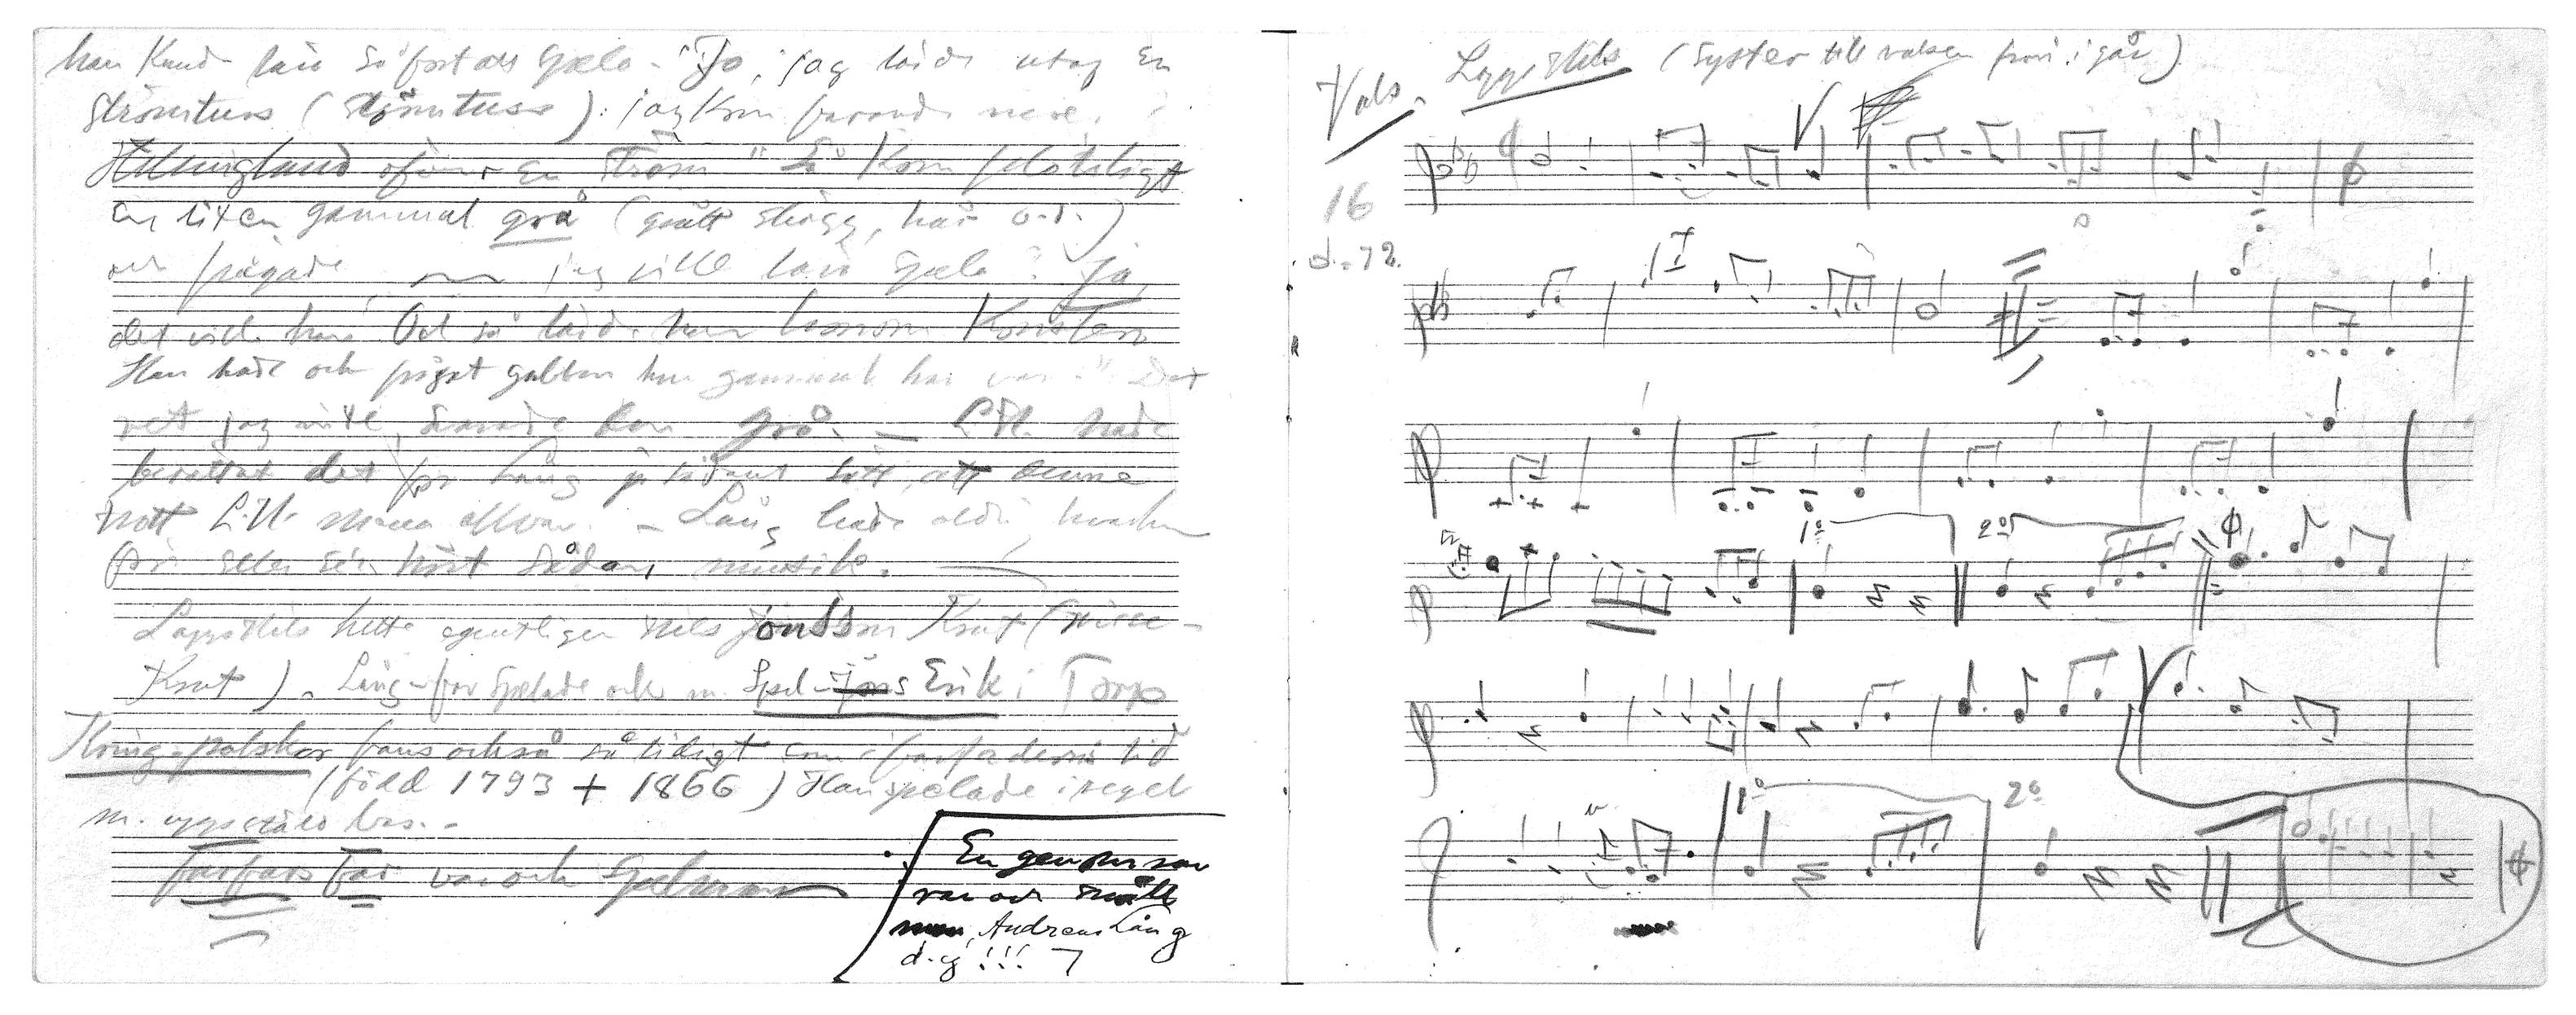 han kund lära så fort att spela - "Jo, jag lärde utav en
Strömtuss (Strömtuss): jag kom farande nere i
Helsingland öfver en ström" så kom plötsligt
en liten gammal grå (grått skägg, hår o.s.)
och frågade om jag ville lära spela? Ja,
det ville han. Och så lärde han honom konsten
Han hade och frågat gubben hur gammal han var: "Det
vet jag inte, svarade den grå. — Lill. hade
berättat det för Lång på sådant sätt, att denne
nott Lill. mena allvar. - Lång hade aldrig hvarken
för eller sen hört sådan musik. —
Lapp Nils hette egentligen Nils Jonsson Knut (Nisse-
Knut). Läng-far spelade ock m. Spel- Erik i Torps
Kring-polskor fans också så tidigt som i farfaderns tid
(föld 1793 + 1866) Han spelade i regel
m. uppstäld bas. -
farfars far var och Spelman
En gen
var och snäll
Andreas Lång
d.y !!! 7
Vals. Lapp Nils (Syster till valsen från i går)
16
d. = 72.
1º 2º
1º 2º